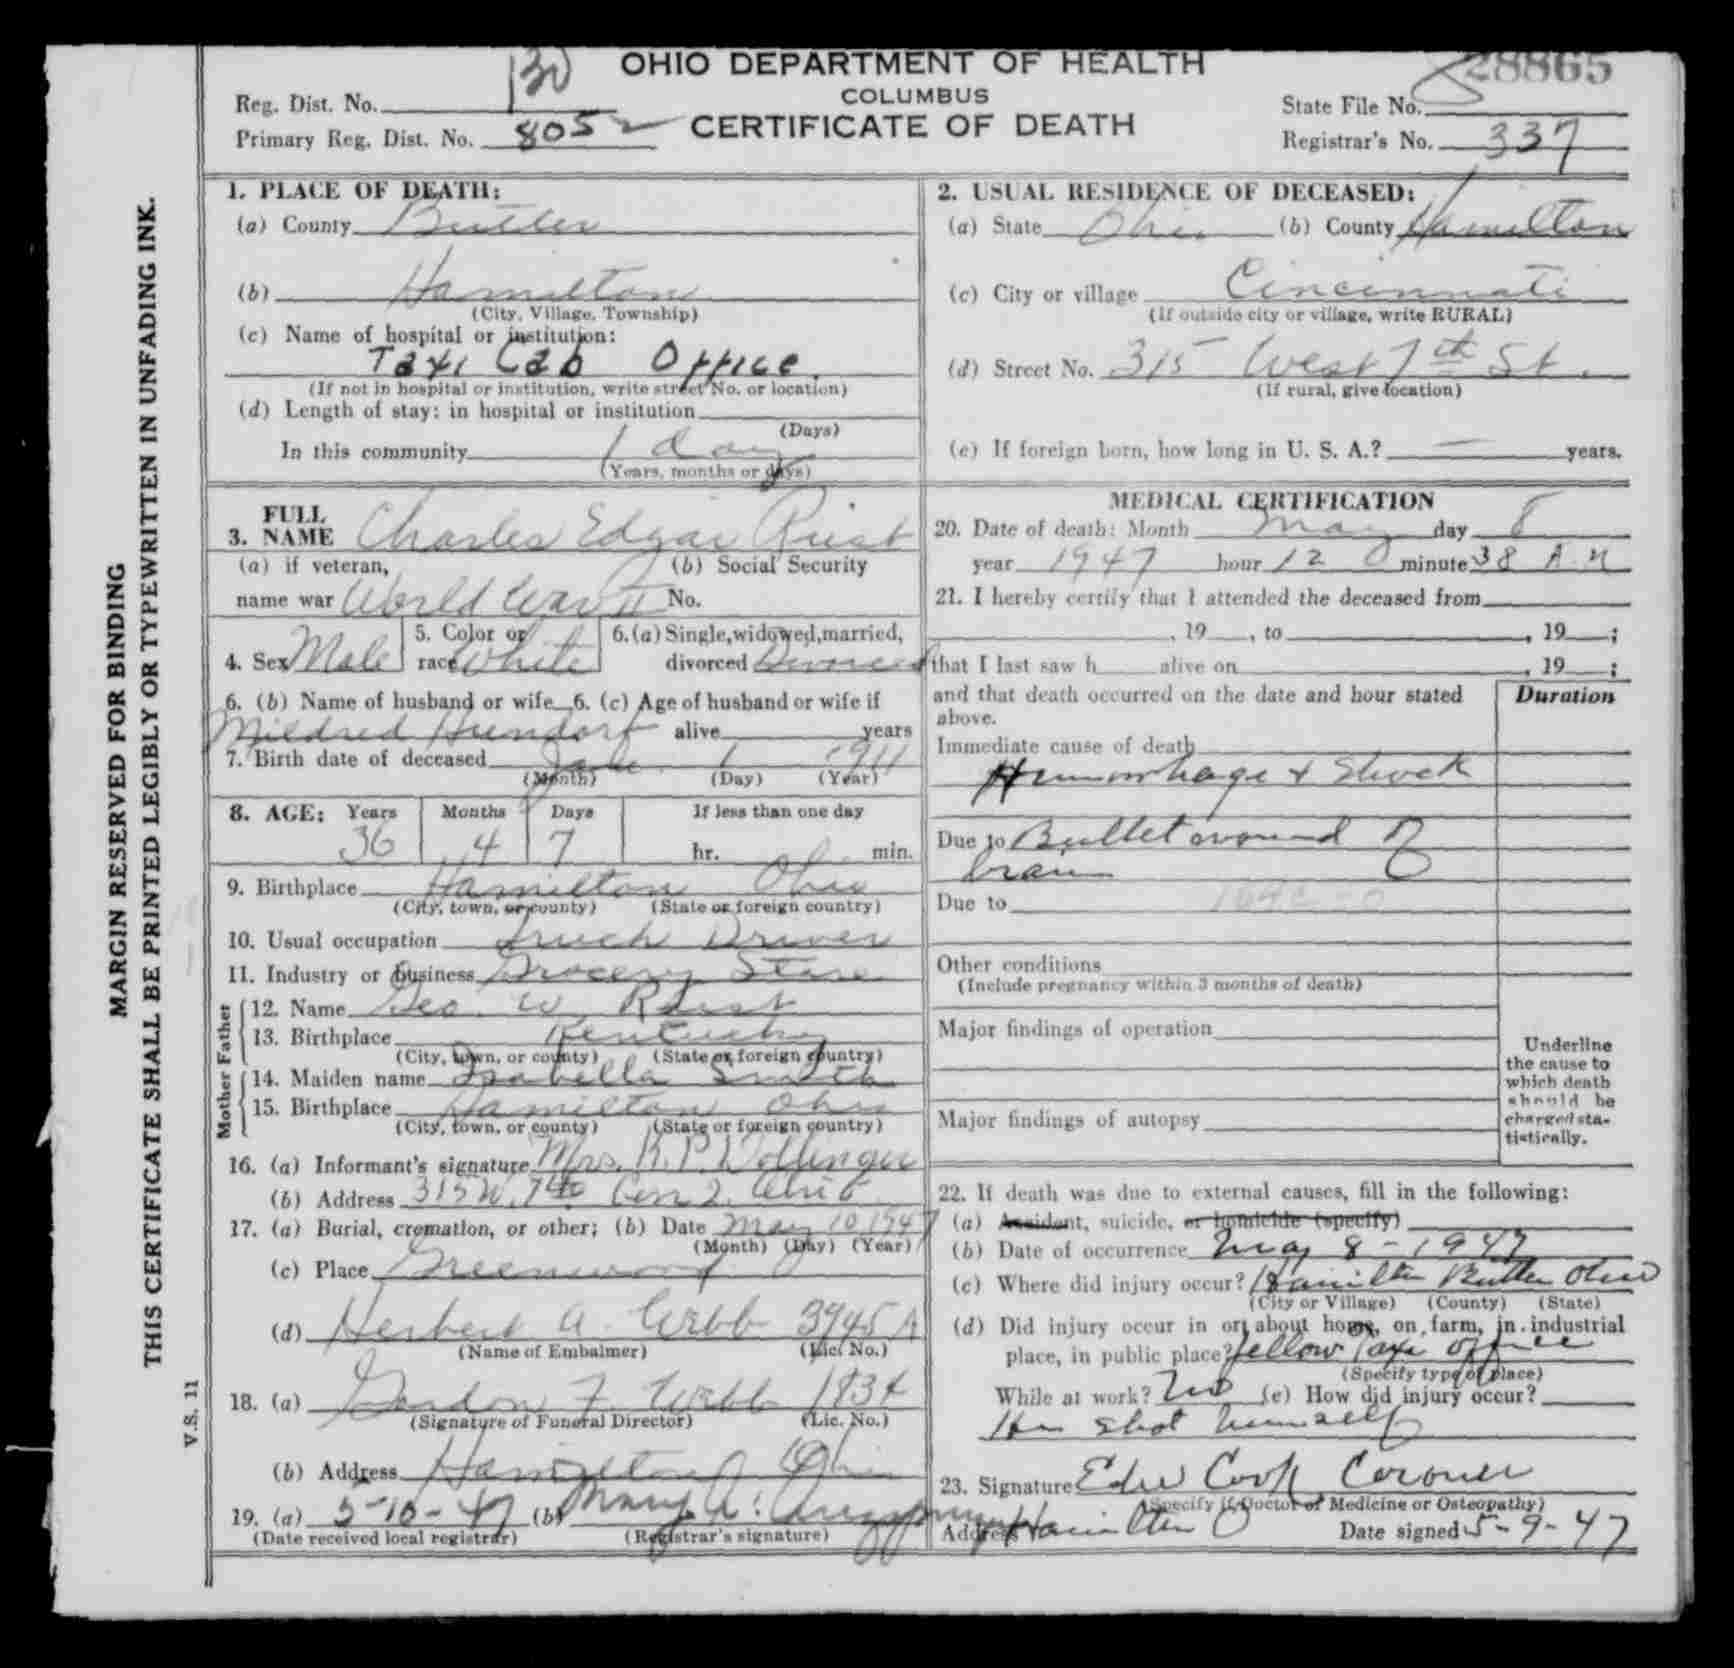 130
OHIO DEPARTMENT OF HEALTH
28865
Reg. Dist. No.
COLUMBUS
State File No.
Primary Reg. Dist. No. 8052
CERTIFICATE OF DEATH
Registrar's No. 337
MARGIN RESERVED FOR BINDING
THIS CERTIFICATE SHALL BE PRINTED LEGIBLY OR TYPEWRITTEN IN UNFADING INK.
V.S. 11
1. PLACE OF DEATH:
(a) County Butler
(b) Hamilton
(City, Village, Township)
(c) Name of hospital or institution:
Taxi Cab Office.
(If not in hospital or institution, write street No. or location)
(d) Length of stay: in hospital or institution
(Days)
In this community 1 day
(Years, months or days)
2. USUAL RESIDENCE OF DECEASED:
(a) State Ohio (b) County Hamilton
(c) City or village Cincinnati
(If outside city or village, write RURAL)
(d) Street No. 315 West 7th St.
(If rural, give location)
(e) If foreign born, how long in U. S. A.? — years.
3. FULL NAME Charles Edgar Riest
(a) if veteran, (b) Social Security
name war World War II No.
4. Sex Male 5. Color or race White 6. (a) Single, widowed, married, divorced Divorced
6. (b) Name of husband or wife 6. (c) Age of husband or wife if
Mildred alive years
7. Birth date of deceased Jan. 1 1911
(Month) (Day) (Year)
8. AGE: Years Months Days If less than one day
36 4 7 hr. min.
9. Birthplace Hamilton Ohio
(City, town, or county) (State or foreign country)
10. Usual occupation Truck Driver
11. Industry or business Grocery Store
Father
12. Name Geo. W. Riest
13. Birthplace Kentucky
(City, town, or county) (State or foreign country)
Mother
14. Maiden name Isabella Smith
15. Birthplace Hamilton Ohio
(City, town, or county) (State or foreign country)
16. (a) Informant's signature Mrs. R. P. Dollinger
(b) Address 315 W. 7th Cin 2. Ohio
17. (a) Burial, cremation, or other; (b) Date May 10 1947
(Month) (Day) (Year)
(c) Place Greenwood
(d) Herbert A. Webb 3945 A
(Name of Embalmer) (Lic. No.)
18. (a) Gordon F. Webb 1834
(Signature of Funeral Director) (Lic. No.)
(b) Address Hamilton, Ohio
19. (a) 5-10-47 (b) Mary A.
(Date received local registrar) (Registrar's signature)
MEDICAL CERTIFICATION
20. Date of death: Month May day 8
year 1947 hour 12 minute 38 A.M
21. I hereby certify that I attended the deceased from
, 19 , to , 19 ;
that I last saw h alive on , 19 ;
and that death occurred on the date and hour stated above.
Duration
Immediate cause of death
Hemorrhage & Shock
Due to Bullet wound of
brain
Due to
Other conditions
(Include pregnancy within 3 months of death)
Major findings of operation
Major findings of autopsy
Underline the cause to which death should be charged statistically.
22. If death was due to external causes, fill in the following:
(a) Accident, suicide, or homicide (specify)
(b) Date of occurrence May 8-1947
(c) Where did injury occur? Hamilton Butler Ohio
(City or Village) (County) (State)
(d) Did injury occur in or about home, on farm, in industrial
place, in public place? Yellow Taxi office
(Specify type of place)
While at work? No (e) How did injury occur?
He shot himself
23. Signature Edw Cook Coroner
(Specify if Doctor of Medicine or Osteopathy)
Address Hamilton O Date signed 5-9-47